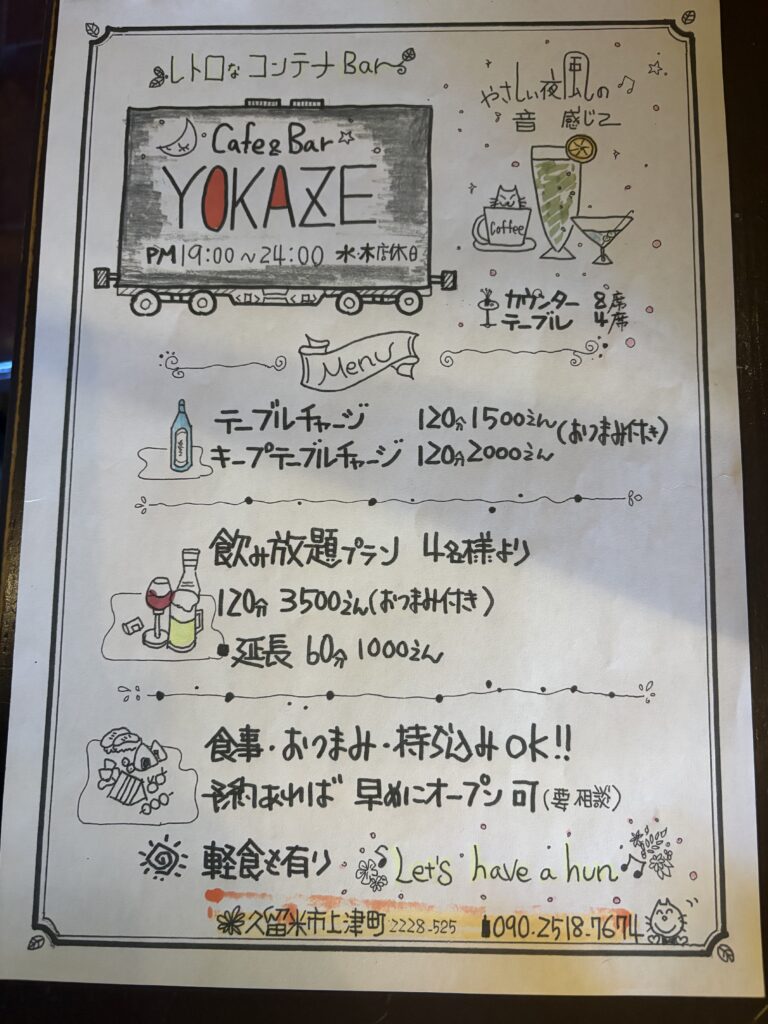 レトロなコンテナBar
やさしい夜風の
音 感じて
Cafe & Bar
YOKAZE
PM 19:00〜24:00 水・木店休日
Coffee
カウンター 8席
テーブル 4席
Menu
テーブルチャージ 120分1500えん(おつまみ付き)
キープテーブルチャージ 120分2000えん
飲み放題プラン 4名様より
120分 3500えん(おつまみ付き)
延長 60分1000えん
食事・おつまみ・持ち込みOK!!
予約あれば 早めにオープン可(要相談)
軽食も有り Let's have a hun
久留米市上津町2228-525 090-2518-7674